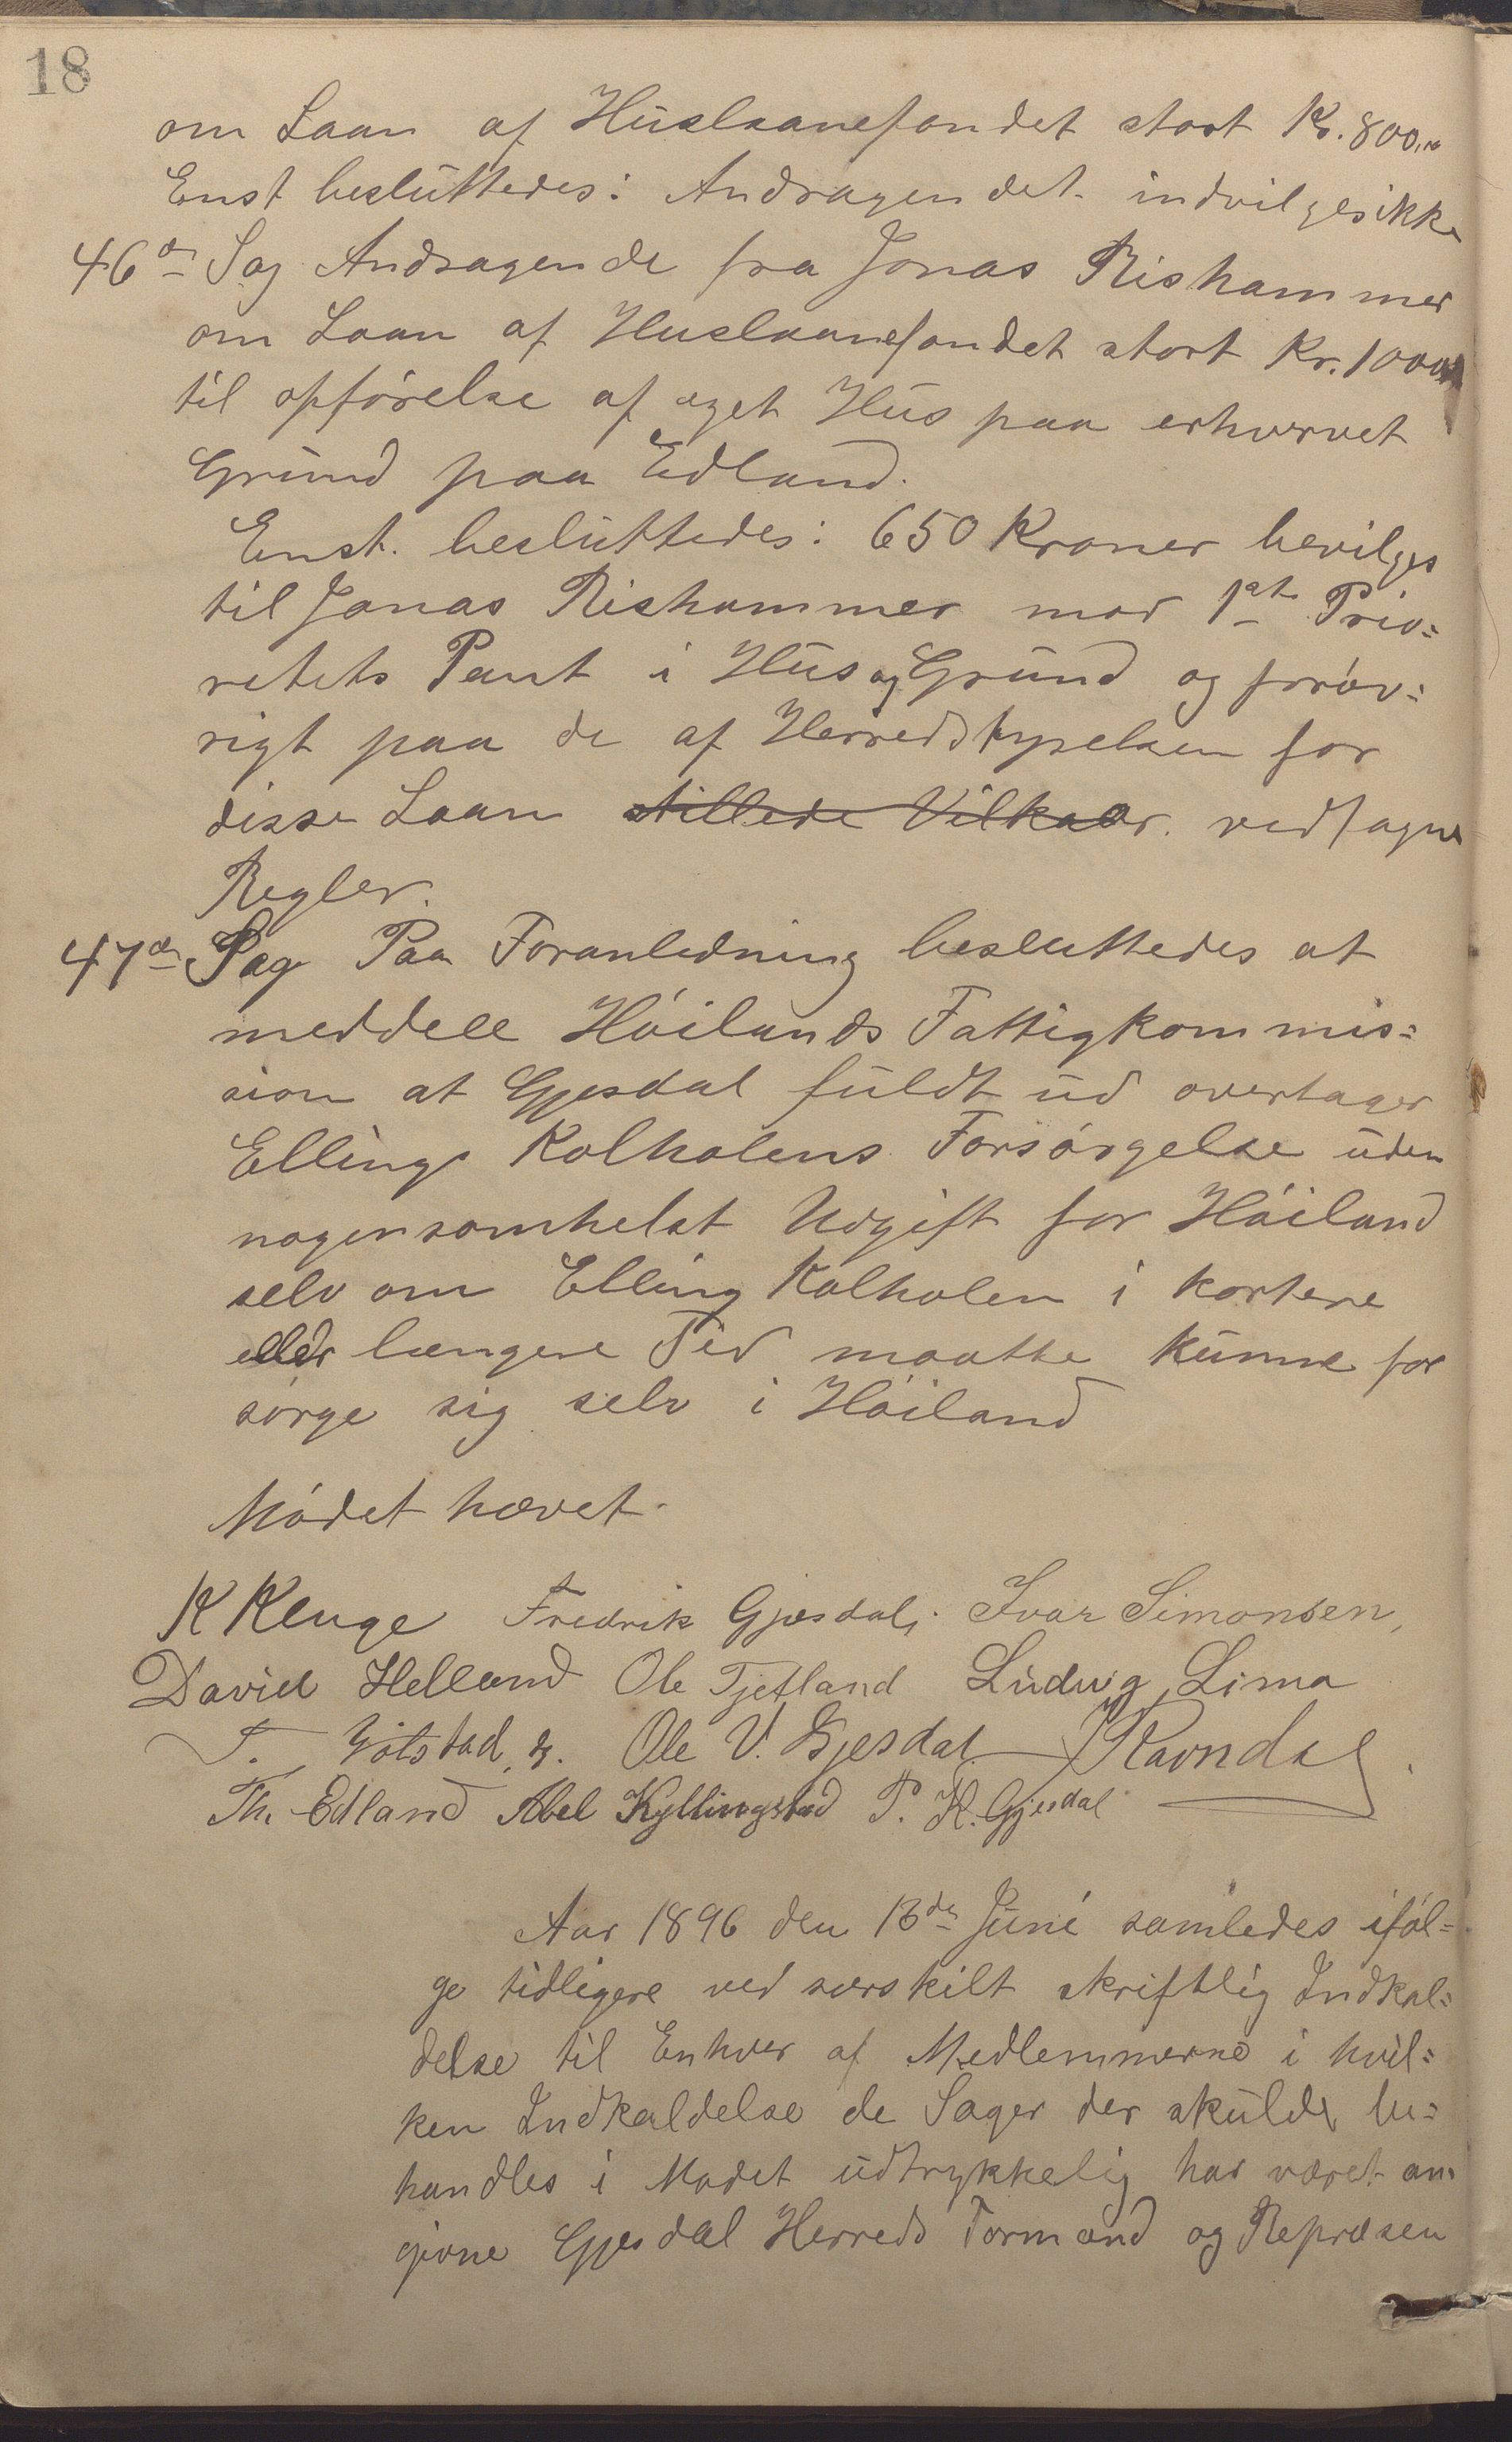 18
om Laan af Huslaanefondet stort Kr. 800,00
Enst besluttedes: Andragendet indvilges ikke
46de Sag Andragende fra Jonas Rishammer
om Laan af Huslaanefondet stort Kr. 1000
til opførelse af eget Hus paa erhvervet
Grund paa Edland.
Enst. besluttedes: 650 Kroner bevilges
til Jonas Rishammer mod 1ste Prio=
ritets Pant i Hus og Grund og forøv=
rigt paa de af Herredstyrelsen for
disse Laan stillede Vilkaar. vedtagne
Regler.
47de Sag Paa Foranledning besluttedes at
meddele Høilands Fattigkommis=
sion at Gjesdal fuldt ud overtager
Elling Kolholens Forsørgelse uden
nogensomhelst Udgift for Høiland
selv om Elling Kolholen i kortere
eller længere Tid maatte kunne for
sørge sig selv i Høiland
Mødet hævet.
K Kluge Fredrik Gjesdal, Ivar Simonsen,
David Helland Ole Tjetland Ludvig Lima
T. Ole V. Gjesdal Ravndal.
Th. Edland Abel Kyllingstad P. K. Gjesdal
Aar 1896 den 13de Juni samledes iføl=
ge tidligere ved særskilt skriftlig Indkal=
delse til Enhver af Medlemmerne i hvil=
ken Indkaldelse de Sager der skulde be=
handles i Mødet udtrykkelig har været an
givne Gjesdal Herreds Formænd og Repræsen